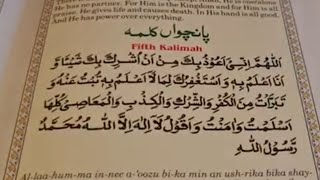 He has no partner. For Him is the Kingdom and for Him is
praise. He gives life and causes death. In His hand is all good.
And He has power over everything.
پانچواں کلمہ
Fifth Kalimah
اَللّٰهُمَّ اِنِّيْٓ اَعُوْذُ بِكَ مِنْ اَنْ اُشْرِكَ بِكَ شَيْئًا وَّ
اَنَا اَعْلَمُ بِهٖ وَاَسْتَغْفِرُكَ لِمَا لَآ اَعْلَمُ بِهٖ تُبْتُ عَنْهُ وَ
تَبَرَّأْتُ مِنَ الْكُفْرِ وَالشِّرْكِ وَالْكِذْبِ وَالْمَعَاصِيْ كُلِّهَا
اَسْلَمْتُ وَاٰمَنْتُ وَاَقُوْلُ لَآ اِلٰهَ اِلَّا اللّٰهُ مُحَمَّدٌ
رَّسُوْلُ اللّٰهِ
Al-laa-hum-ma in-nee a-'oozu bi-ka min an ush-rika bika shay-